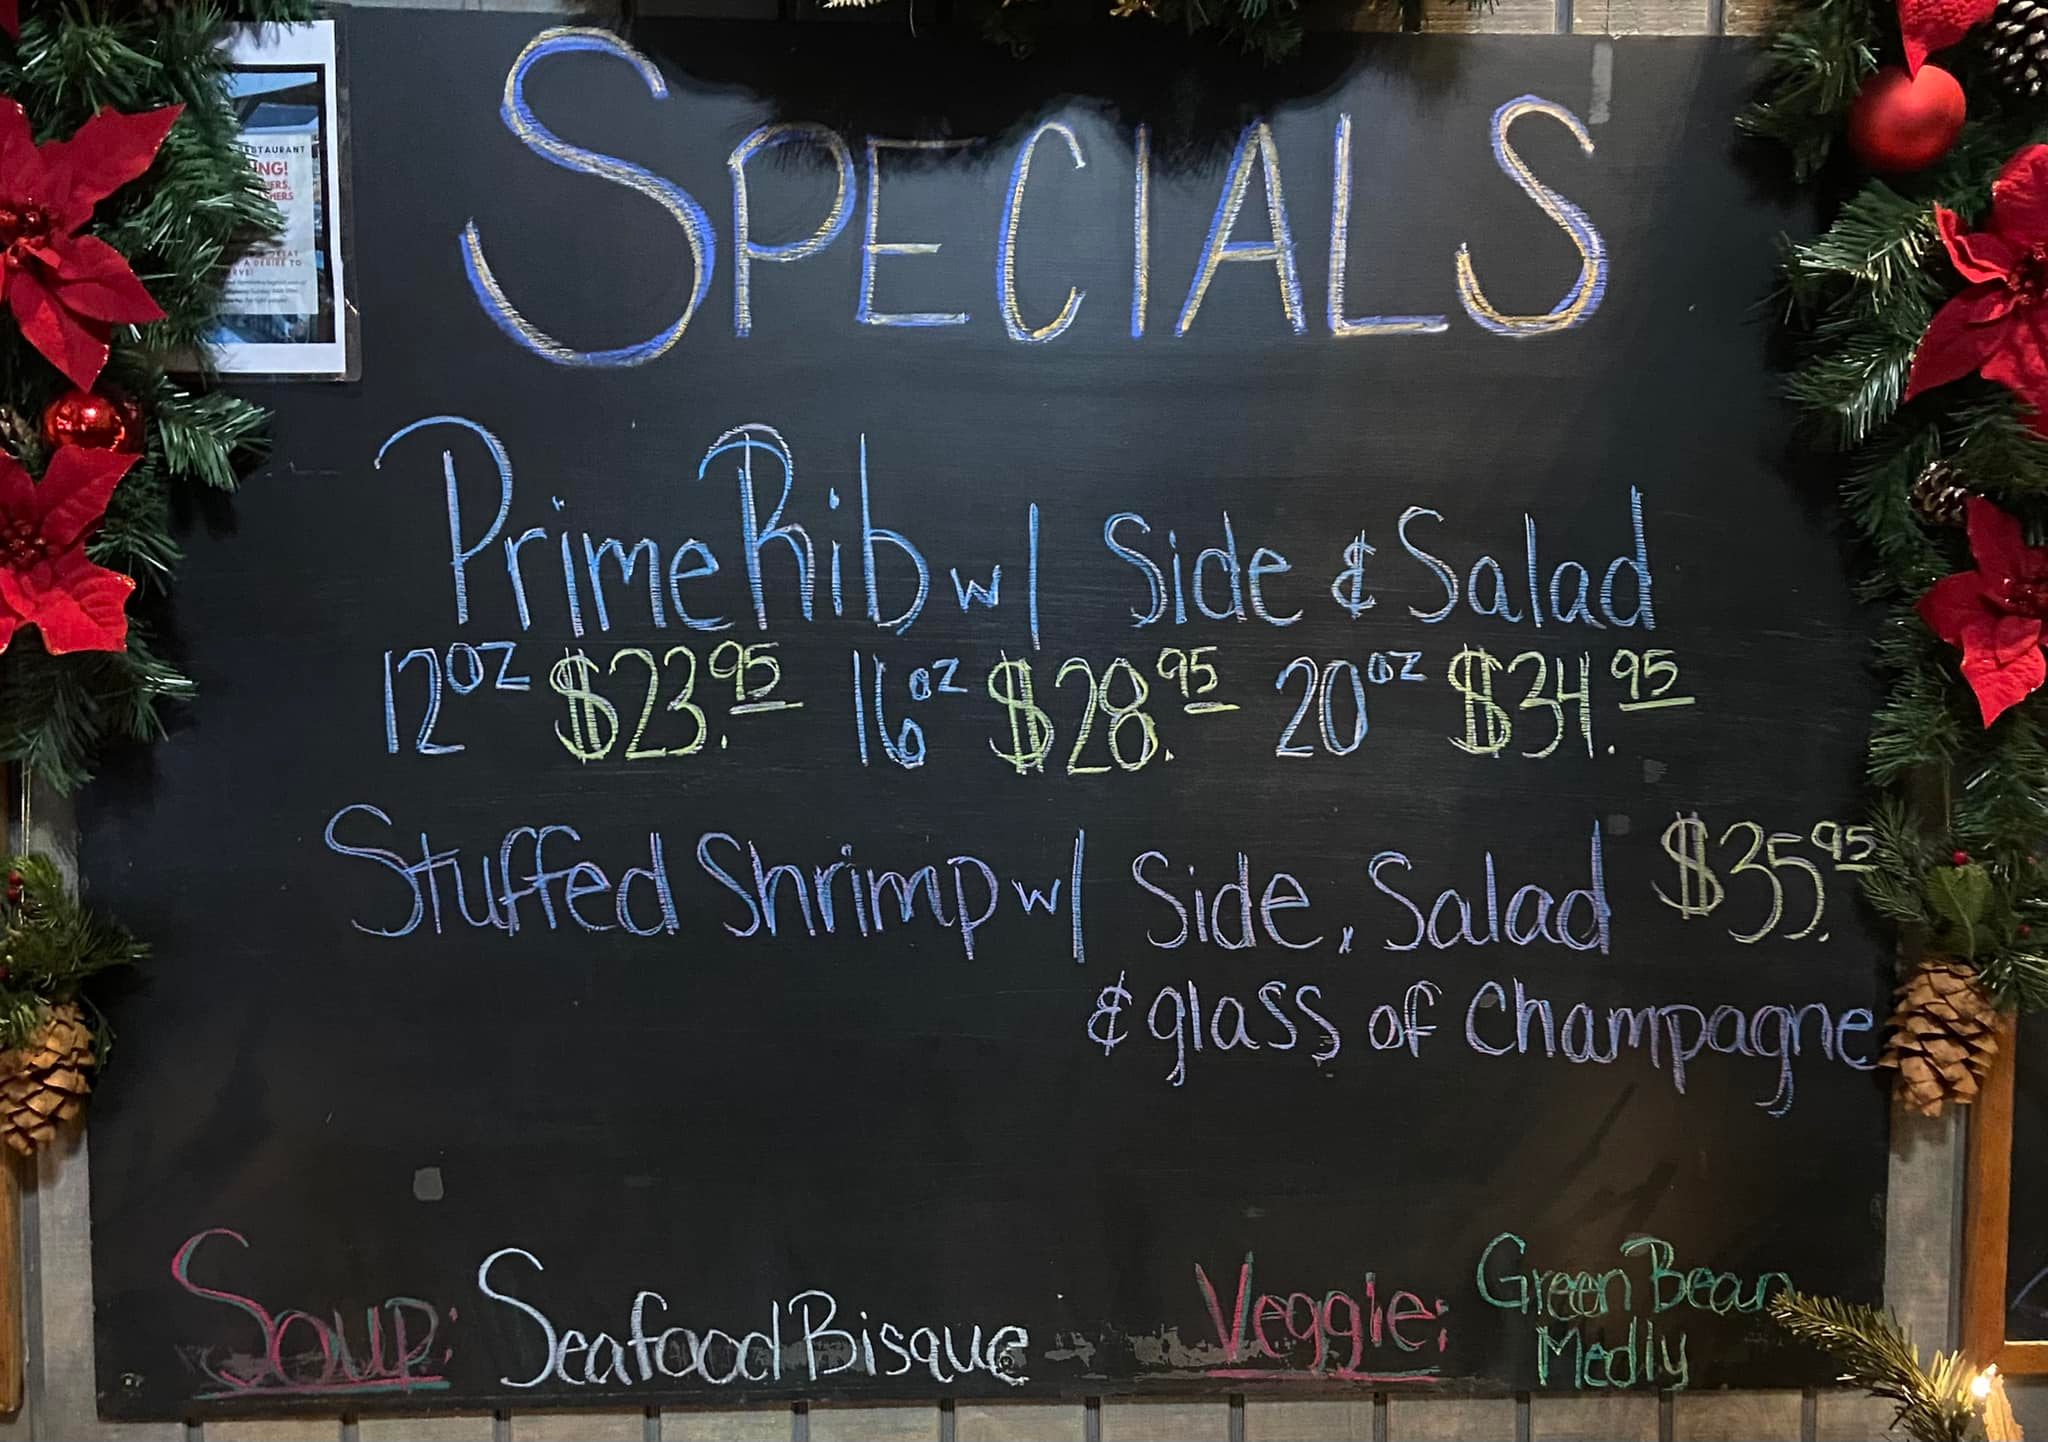 SPECIALS
ESTAURANT
Prime Rib w/ Side & Salad
12oz $23.95 16oz $28.95 20oz $34.95
Stuffed Shrimp w/ Side, Salad $35.95
& glass of Champagne
Soup: Seafood Bisque Veggie: Green Bean
Medly